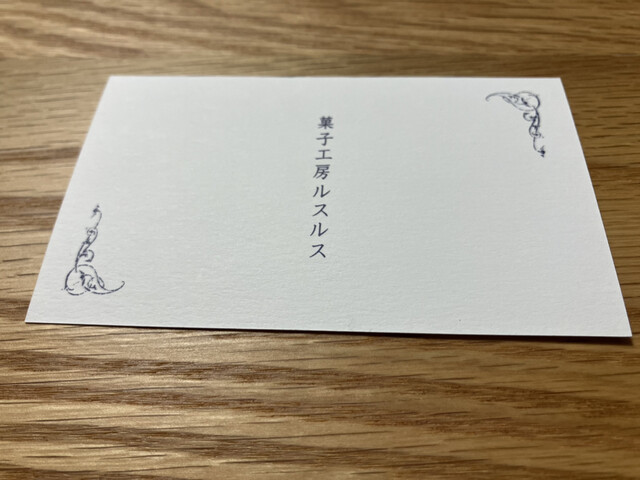 菓子工房ルスルス